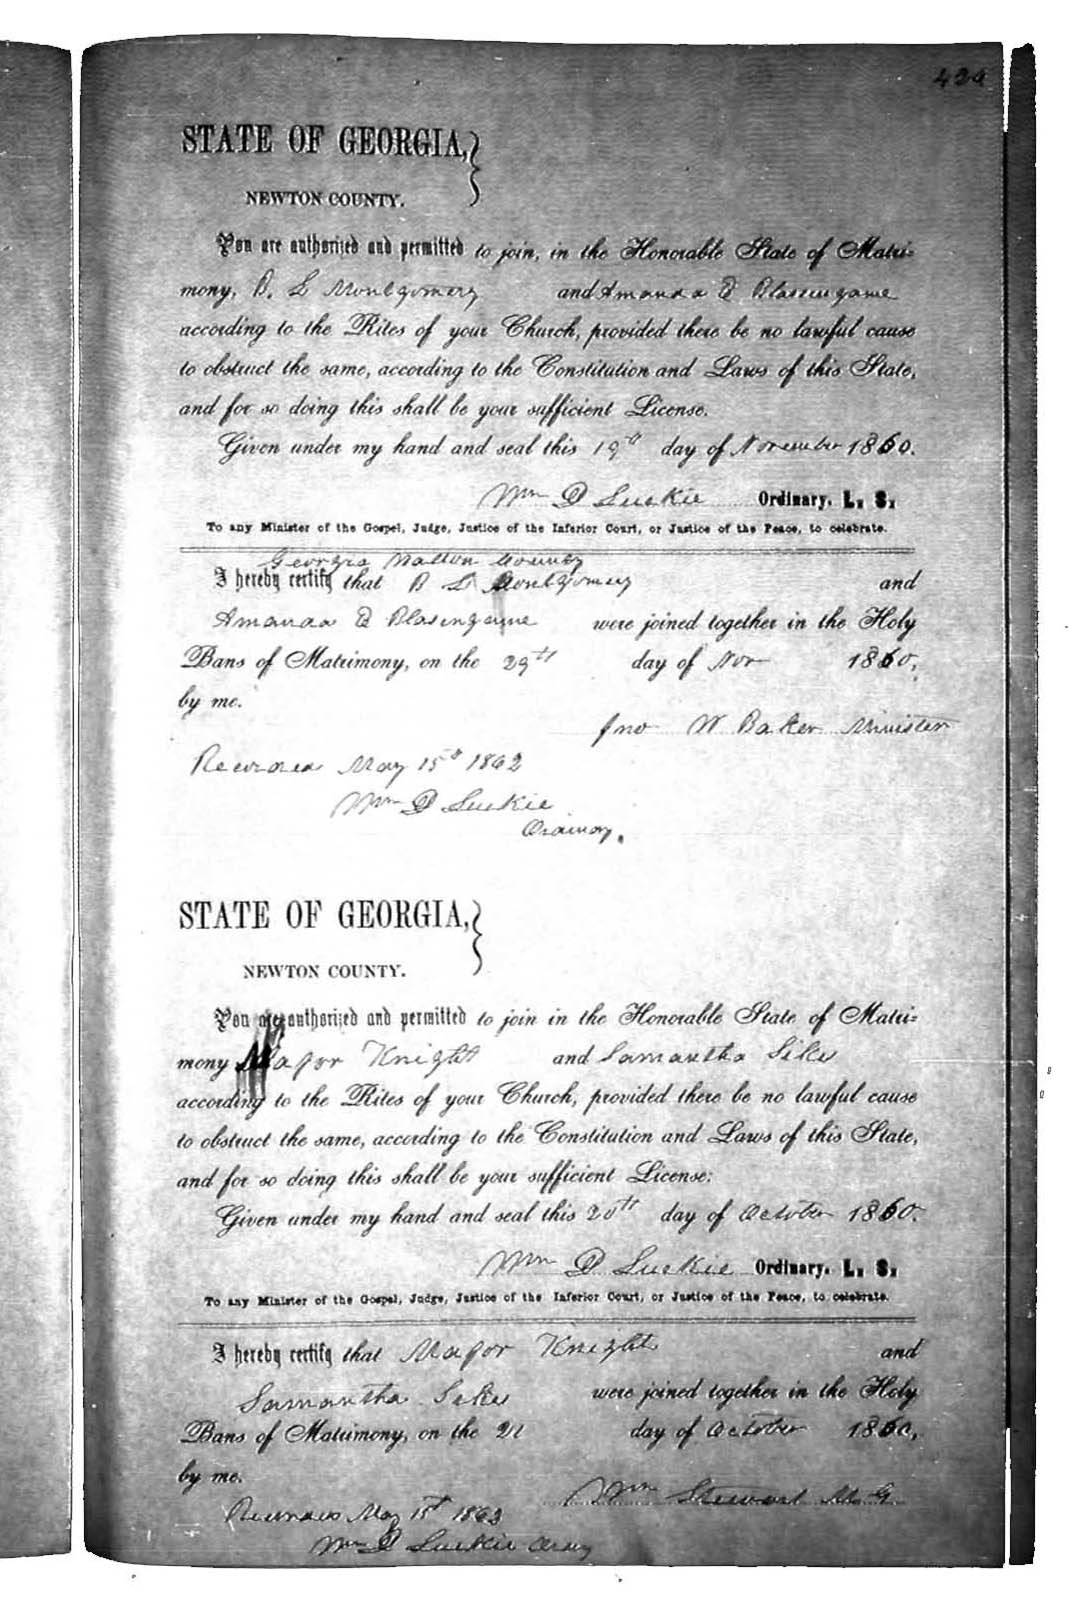 STATE OF GEORGIA,
NEWTON COUNTY.
You are authorized and permitted to join, in the Honorable State of Matri=
mony, B. L Montgomery and Amanda E Blasengame
according to the Rites of your Church, provided there be no lawful cause
to obstruct the same, according to the Constitution and Laws of this State,
and for so doing this shall be your sufficient License.
Given under my hand and seal this 19th day of November 1860.
Wm D Luckie Ordinary. L. S.
To any Minister of the Gospel, Judge, Justice of the Inferior Court, or Justice of the Peace, to celebrate.
Georgia Walton County
I hereby certify that B L Montgomery and
Amanda E Blasengame were joined together in the Holy
Bans of Matrimony, on the 29th day of Nov 1860,
by me.
Jno W Baker Minister
Recorded May 15th 1862
Wm D Luckie
Ordinary.
STATE OF GEORGIA,
NEWTON COUNTY.
You are authorized and permitted to join in the Honorable State of Matri=
mony Major Knight and Samantha Sikes
according to the Rites of your Church, provided there be no lawful cause
to obstruct the same, according to the Constitution and Laws of this State,
and for so doing this shall be your sufficient License:
Given under my hand and seal this 20th day of October 1860.
Wm D Luckie Ordinary. L. S.
To any Minister of the Gospel, Judge, Justice of the Inferior Court, or Justice of the Peace, to celebrate.
I hereby certify that Major Knight and
Samantha Sikes were joined together in the Holy
Bans of Matrimony, on the 21 day of October 1860,
by me.
Wm Stewart M. G
Recorded May 15th 1862
Wm D Luckie Ordny